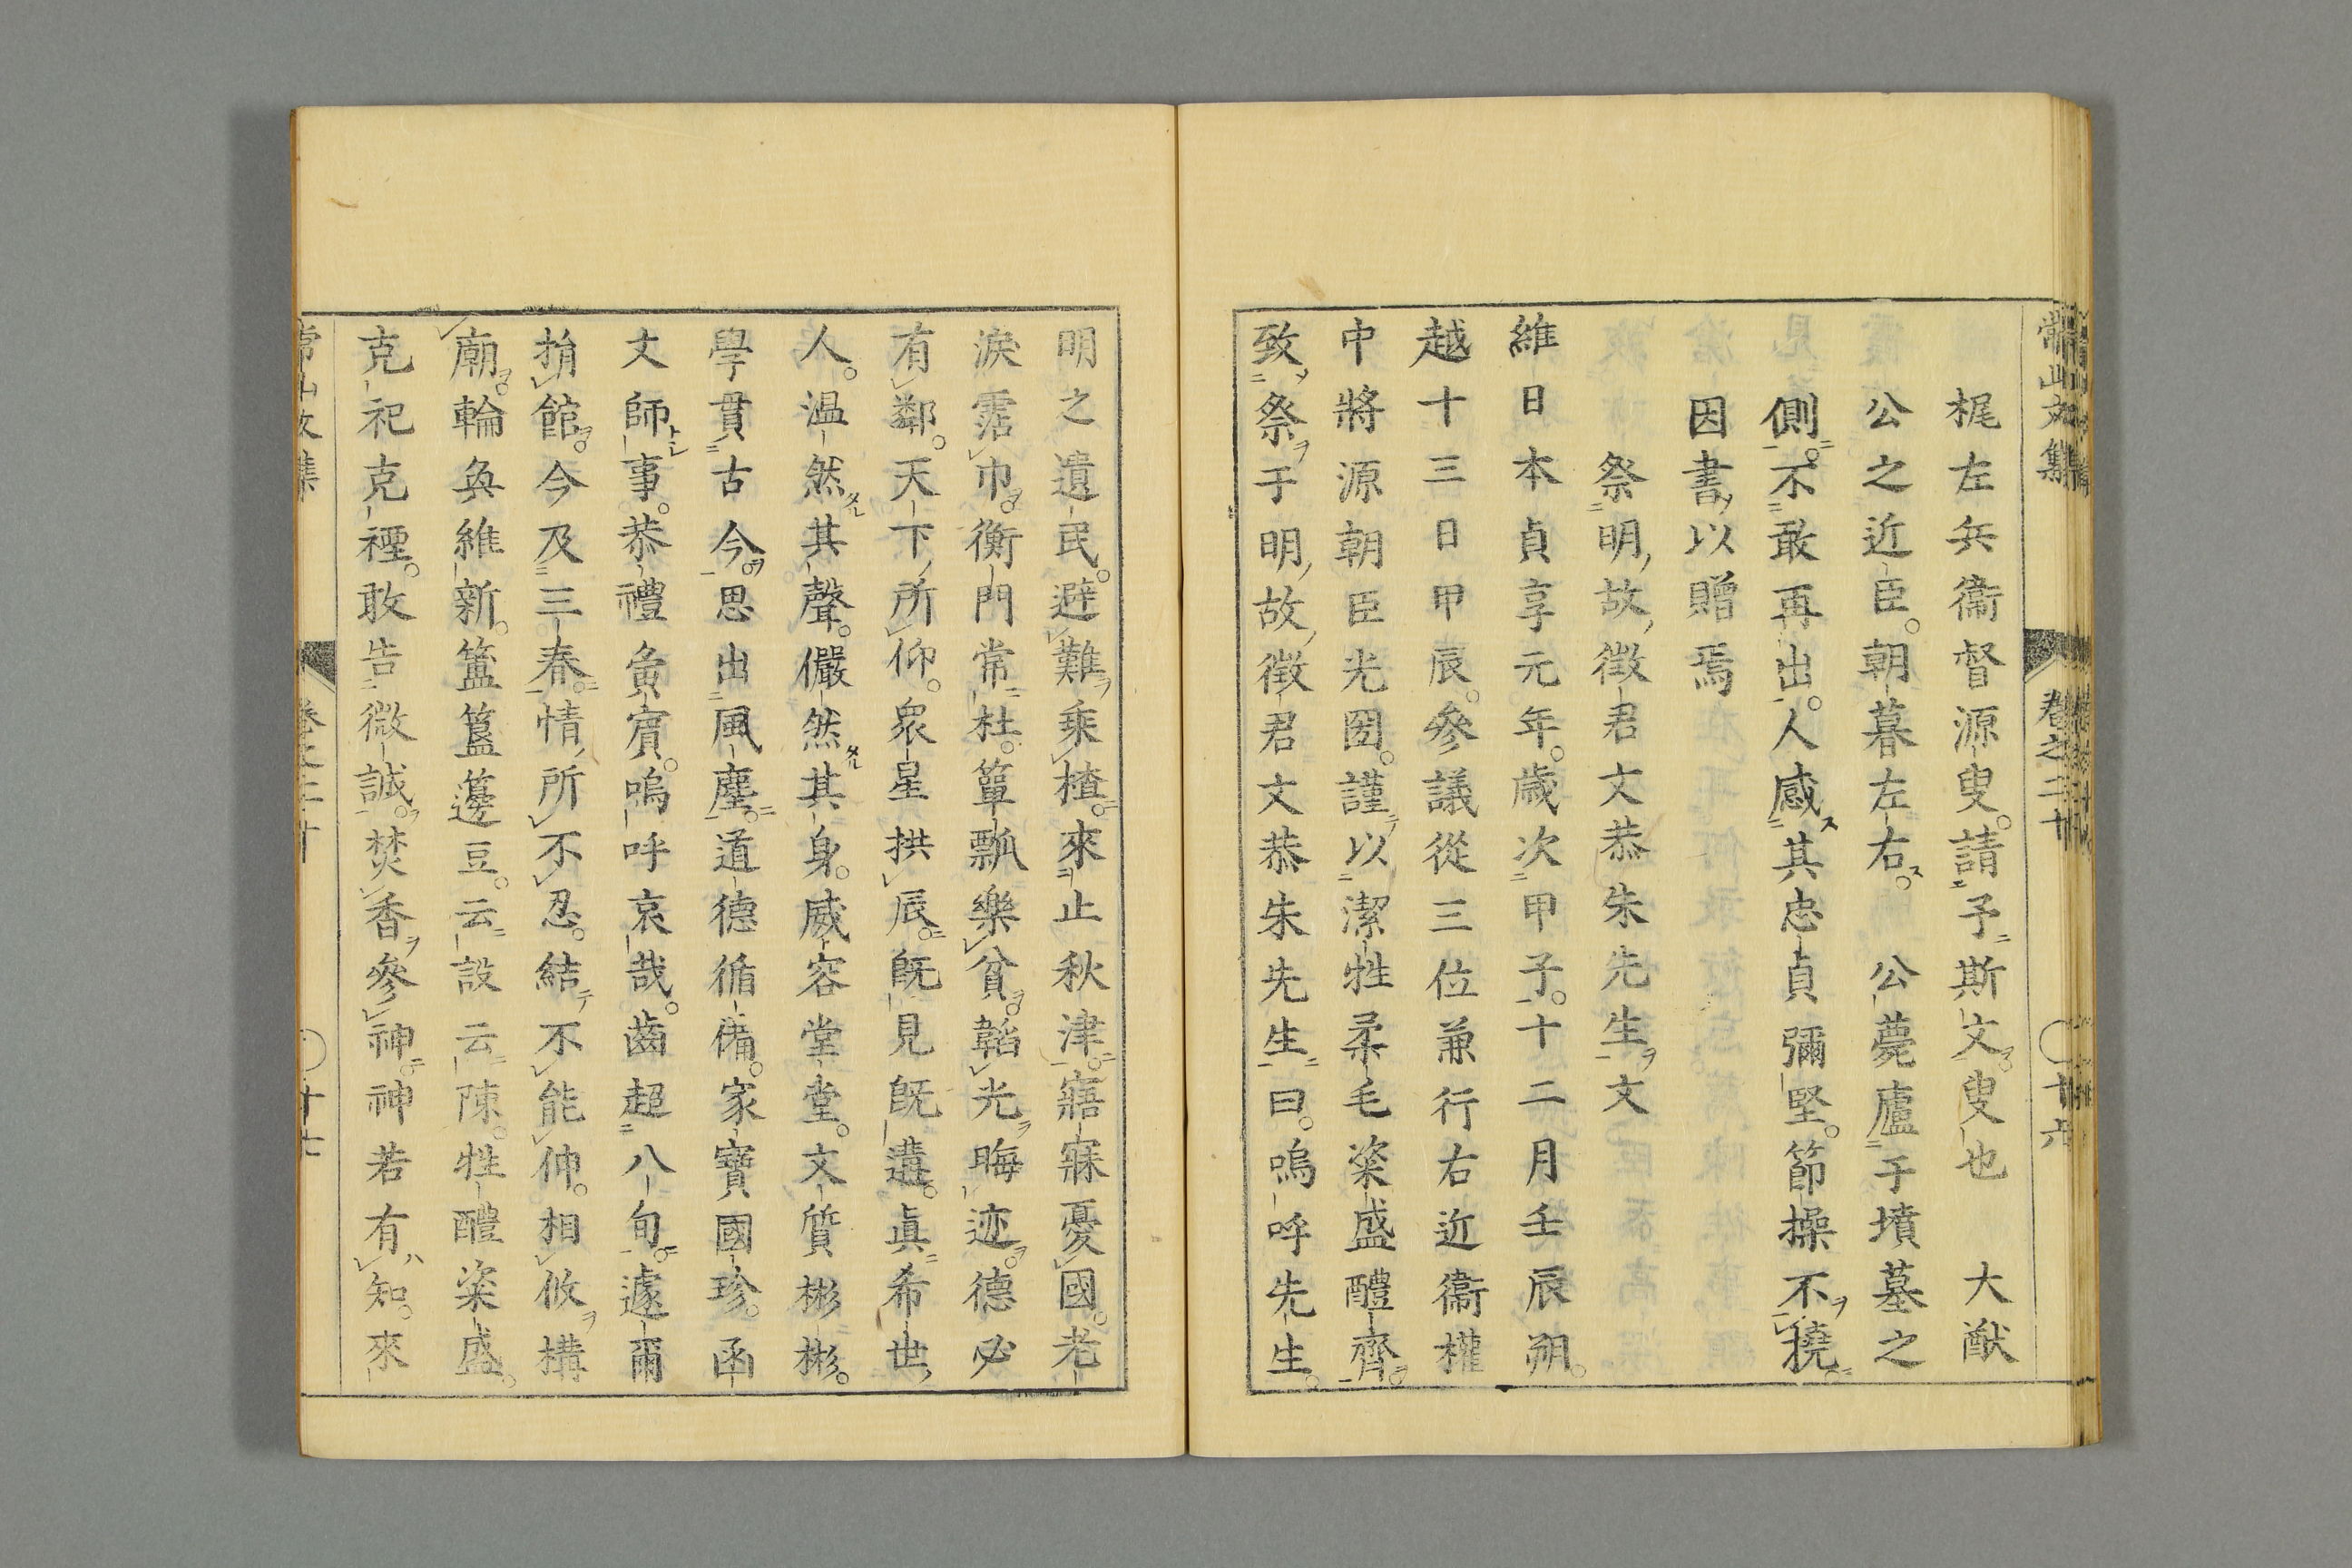 常山文集 卷之二十 〇十六
梶左兵衞督源叟請予斯文叟也 大猷
公之近臣朝暮左右 公薨廬于墳墓之
側不敢再出人感其忠貞彌堅節操不撓
因書以贈焉
祭明故徵君文恭朱先生文
維日本貞享元年歲次甲子十二月壬辰朔
越十三日甲辰參議從三位兼行右近衞權
中將源朝臣光圀謹以潔牲柔毛粢盛醴齊
致祭于明故徵君文恭朱先生曰嗚呼先生
明之遺民避難乘槎來止秋津寤寐憂國老
淚霑巾衡門常杜簞瓢樂貧韜光晦迹德必
有鄰天下所仰衆星拱辰旣見旣遘眞希世
人温然其聲儼然其身威容堂堂文質彬彬
學貫古今思出風塵道德循備家寶國珍函
丈師事恭禮夤賓嗚呼哀哉齒超八旬遽爾
捐館今及三春情所不忍結不能伸相攸構
廟輪奐維新簠簋籩豆云設云陳牲醴粢盛
克祀克禋敢告微誠焚香參神神若有知來
常山文集 卷之二十 〇十七